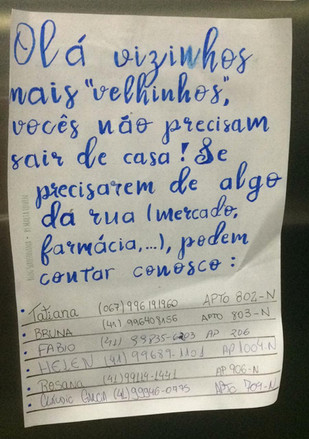 Olá vizinhos
mais "velhinhos",
vocês não precisam
sair de casa! Se
precisarem de algo
da rua (mercado,
farmácia,...), podem
contar conosco:
• Tatiana (067) 996191960 APTO 802-N
• BRUNA (41) 996408156 APTO 803-N
• FABIO (41) AP 206
• HELEN (41) 99689-1101 AP 1004-N
• Rosana (41) 99114-1441 AP 906-N
• (41) 99946-0975 APTO 704-N